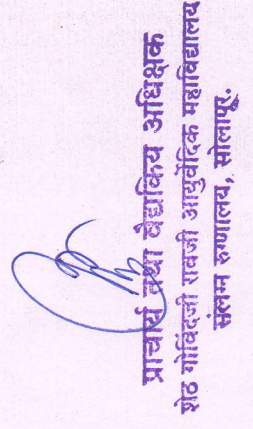 प्राचार्य तथा वैद्यकिय अधिक्षक
शेठ गोविंदजी रावजी आयुर्वेदिक महाविद्यालय
संलग्न रुग्णालय, सोलापूर.